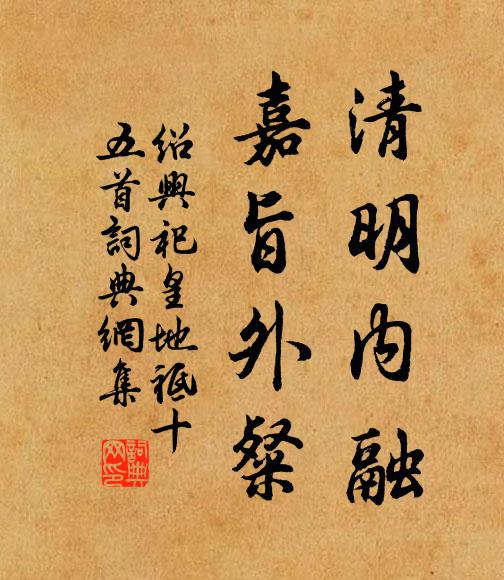 清明内融
嘉旨外粲
紹興祀皇地祇十
五首詞典網集
詞典網印